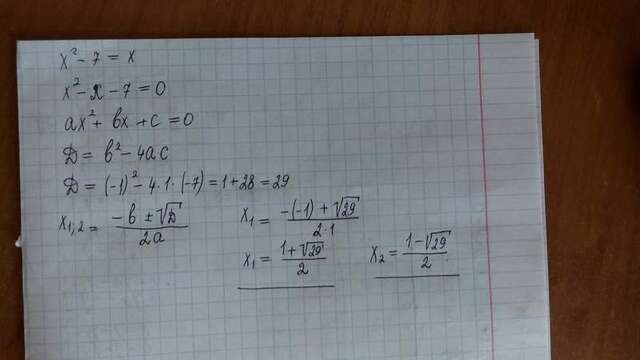 x² - 7 = x
x² - x - 7 = 0
ax² + bx + c = 0
D = b² - 4ac
D = (-1)² - 4·1·(-7) = 1 + 28 = 29
x₁,₂ = (-b ± √D)/(2a)   x₁ = (-(-1) + √29)/(2·1)
x₁ = (1 + √29)/2   x₂ = (1 - √29)/2